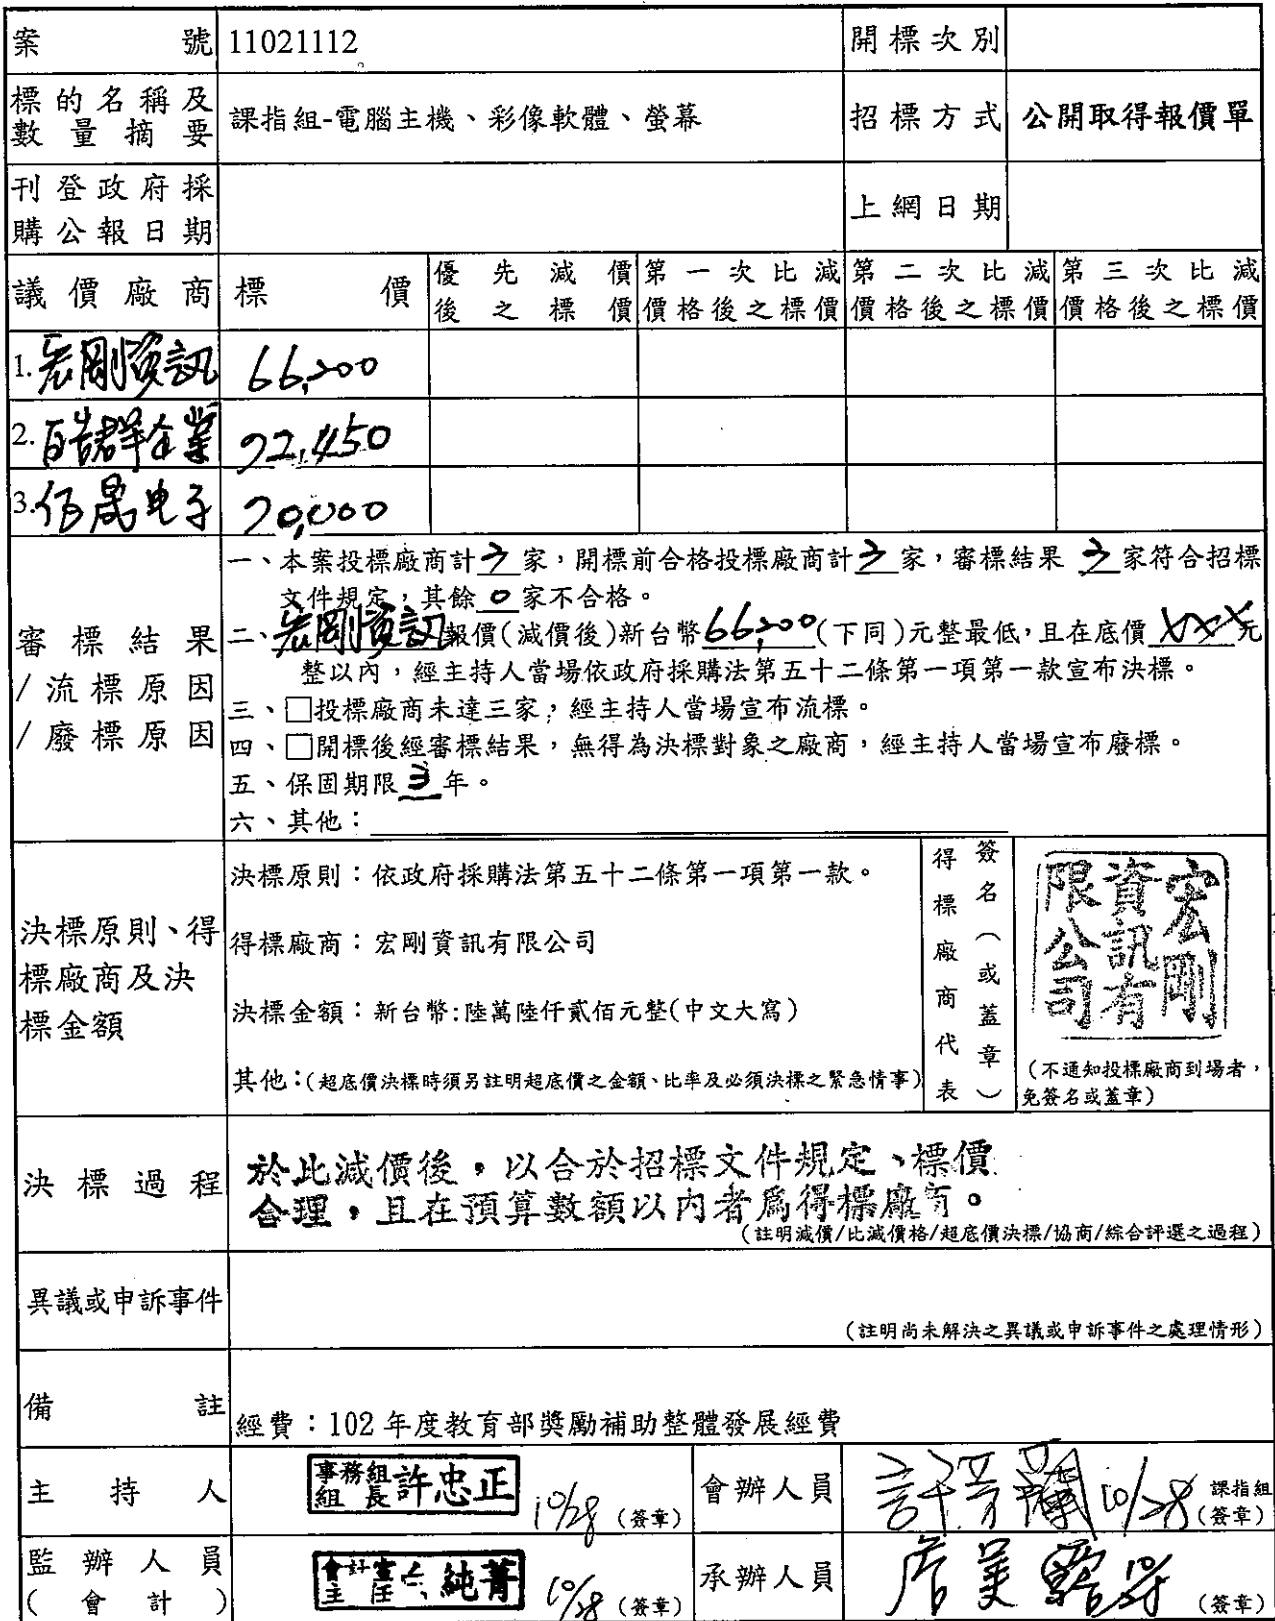 案號 11021112 開標次別
標的名稱及數量摘要 課指組-電腦主機、彩像軟體、螢幕 招標方式 公開取得報價單
刊登政府採購公報日期 上網日期
議價廠商 標價 優先減價後之標價 第一次比減價格後之標價 第二次比減價格後之標價 第三次比減價格後之標價
1.宏剛資訊 66,200
2.皓群企業 72,450
3.佰晟电子 70,000
審標結果/流標原因/廢標原因
一、本案投標廠商計 3 家，開標前合格投標廠商計 3 家，審標結果 3 家符合招標
文件規定，其餘 0 家不合格。
二、宏剛資訊報價(減價後)新台幣66,200(下同)元整最低，且在底價 XXX元
整以內，經主持人當場依政府採購法第五十二條第一項第一款宣布決標。
三、□投標廠商未達三家，經主持人當場宣布流標。
四、□開標後經審標結果，無得為決標對象之廠商，經主持人當場宣布廢標。
五、保固期限 3 年。
六、其他：
決標原則、得標廠商及決標金額
決標原則：依政府採購法第五十二條第一項第一款。
得標廠商：宏剛資訊有限公司
決標金額：新台幣:陸萬陸仟貳佰元整(中文大寫)
其他：(超底價決標時須另註明超底價之金額、比率及必須決標之緊急情事)
得標廠商代表
簽名（或蓋章）
宏剛資訊有限公司
(不通知投標廠商到場者，
免簽名或蓋章)
決標過程
於比減價後，以合於招標文件規定、標價
合理，且在預算數額以內者爲得標廠商。
(註明減價/比減價格/超底價決標/協商/綜合評選之過程)
異議或申訴事件
(註明尚未解決之異議或申訴事件之處理情形)
備註 經費：102 年度教育部獎勵補助整體發展經費
主持人 事務組組長 許忠正 10/28 (簽章) 會辦人員 許芳蘭 10/28 課指組(簽章)
監辦人員(會計) 會計室主任 純菁 10/28 (簽章) 承辦人員 詹美 (簽章)